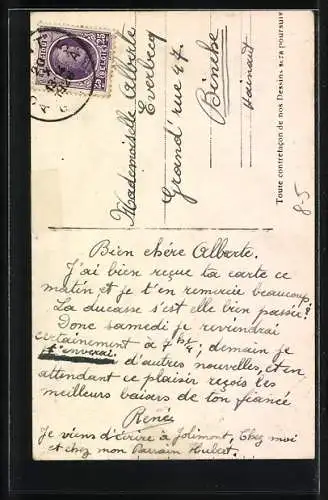 Mademoiselle Alberte
Everbecq
Grand'rue 47
Binche
Hainaut
Toute contrefaçon de nos Dessins sera poursuivie
8-5
Bien chère Alberte.
J'ai bien reçue ta carte ce
matin et je t'en remercie beaucoup,
La ducasse s'est elle bien passée?
Donc samedi je reviendrai
certainement à 7 h 1/4; demain je
t'enverai d'autres nouvelles, et en
attendant ce plaisir reçois les
meilleurs baisers de ton fiancé
René
Je viens d'écrire à Jolimont, Chez moi
et chez mon Parrain Hubert.